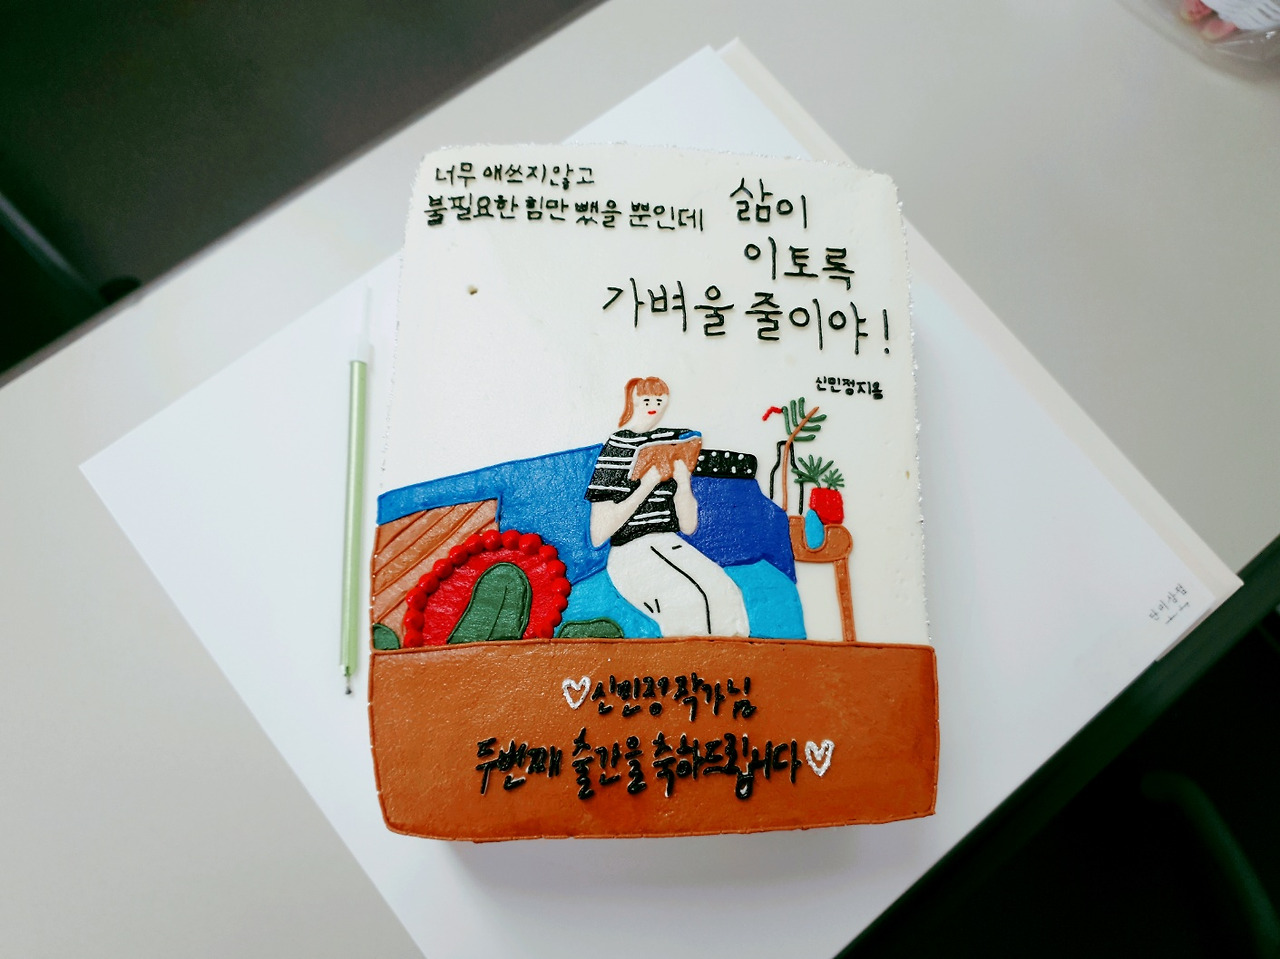 너무 애쓰지않고
불필요한 힘만 뺐을 뿐인데
삶이
이토록
가벼울 줄이야!
신민정지음
신민정 작가님
두번째 출간을 축하드립니다